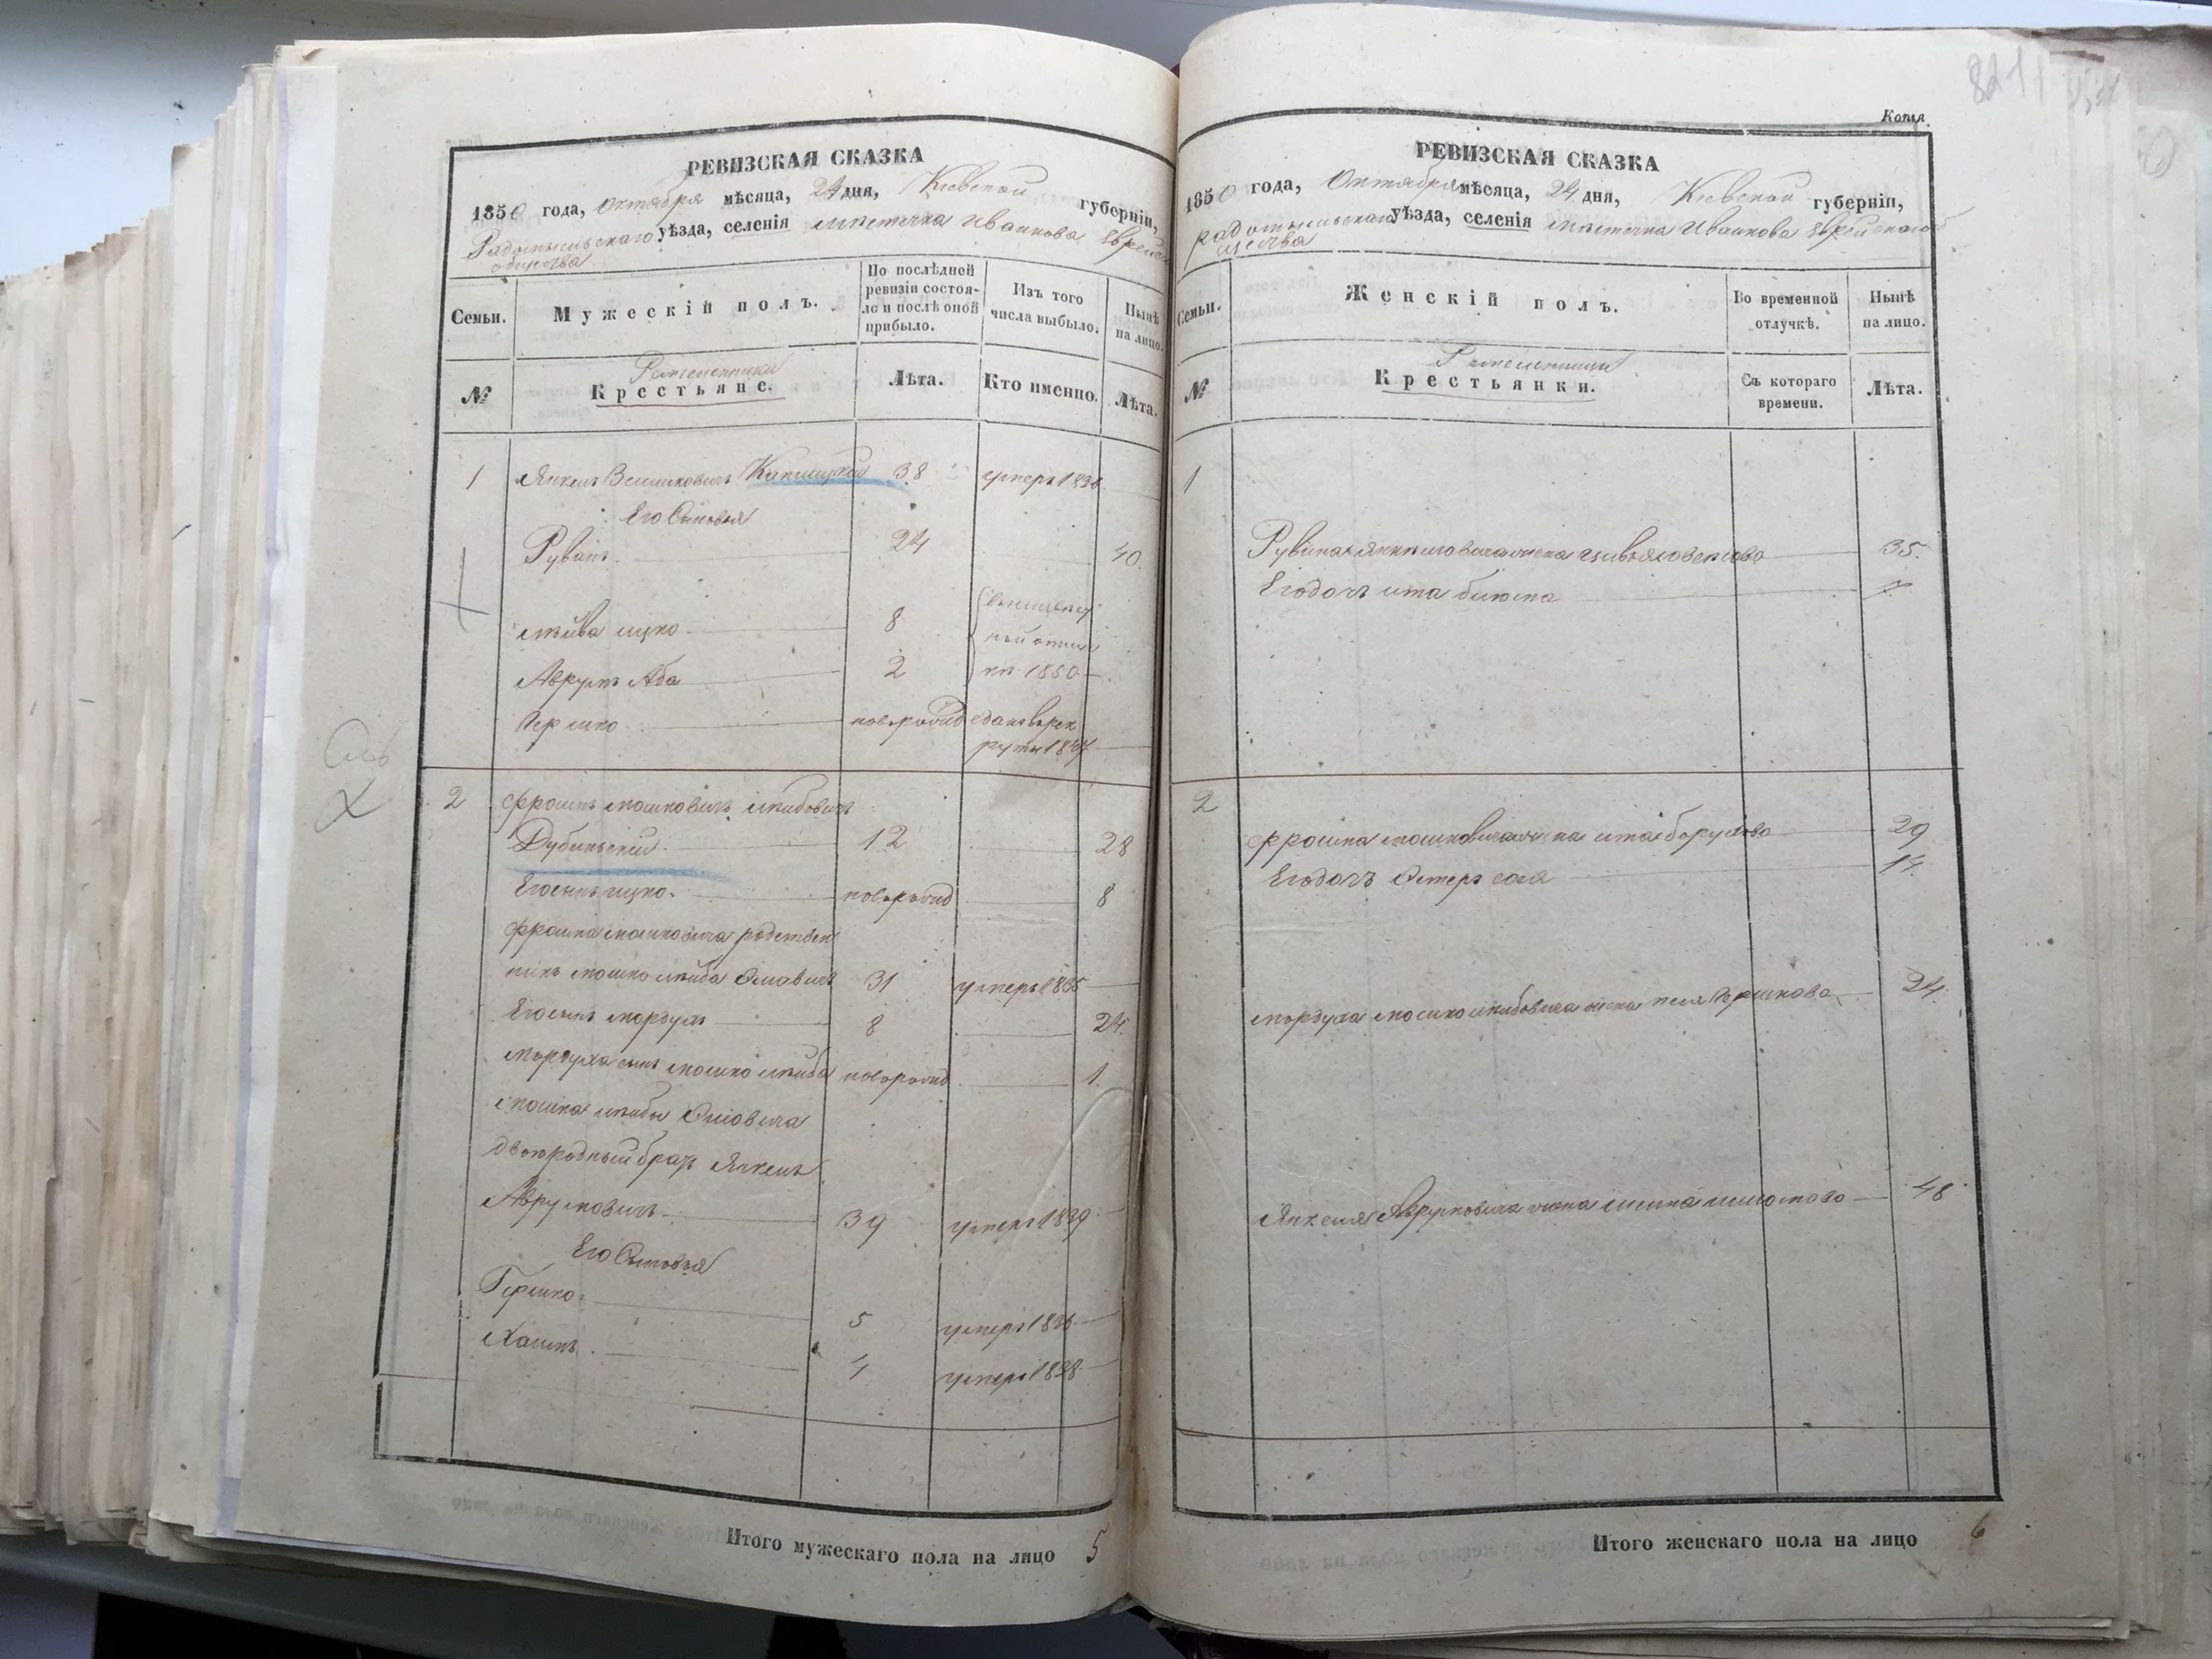 РЕВИЗСКАЯ СКАЗКА
1850 года, Октября мѣсяца, 24 дня, Кіевской губерніи,
Радомысльскаго уѣзда, селенія мѣстечка Иванкова Еврейск
общества
Семьи.
Мужескій полъ.
По послѣдней ревизіи состояло и послѣ оной прибыло.
Изъ того числа выбыло.
Нынѣ на лицо.
№
Ремесленники
Крестьяне.
Лѣта.
Кто именно.
Лѣта.
1 Янкель 38 умеръ 1836
Его Сыновья
Рувинъ 24 40.
Лейба Ицко 8
Аврумъ Аба 2 1850
Гершко новорожд сданъ в рек
руты 18
2 Фроимъ Мошковичъ Лейбовичъ
Дубинскій 12 28
Его сынъ Ицко новорожд 8
Фроима Мошковича родствен
никъ Мошко Лейба 31 умеръ 1835
Его сынъ Мордухъ 8 24.
Мордуха сынъ Мошко Лейба новорожд 1.
Мошка Лейбы
двоюродный братъ Янкель
Аврумовичъ 39 умеръ 1839
Его Сыновья
Гершко 5 умеръ 1836
Хаимъ 4 умеръ 1838
Итого мужескаго пола на лицо 5
821
Копія.
РЕВИЗСКАЯ СКАЗКА
1850 года, Октября мѣсяца, 24 дня, Кіевской губерніи,
Радомысльскаго уѣзда, селенія мѣстечка Иванкова Еврейскаго
щества
Семьи.
Женскій полъ.
Во временной отлучкѣ.
Нынѣ на лицо.
№
Крестьянки.
Съ котораго времени.
Лѣта.
1
Рувина Янкелевича жена 35.
Его дочь Ита
2
Фроима Мошковича жена Ита Борухова 29
Его дочь Эстеръ 14.
Мордуха Мошко Лейбовича жена Песя Гершкова 24.
Янкеля Аврумовича жена 48
Итого женскаго пола на лицо 6